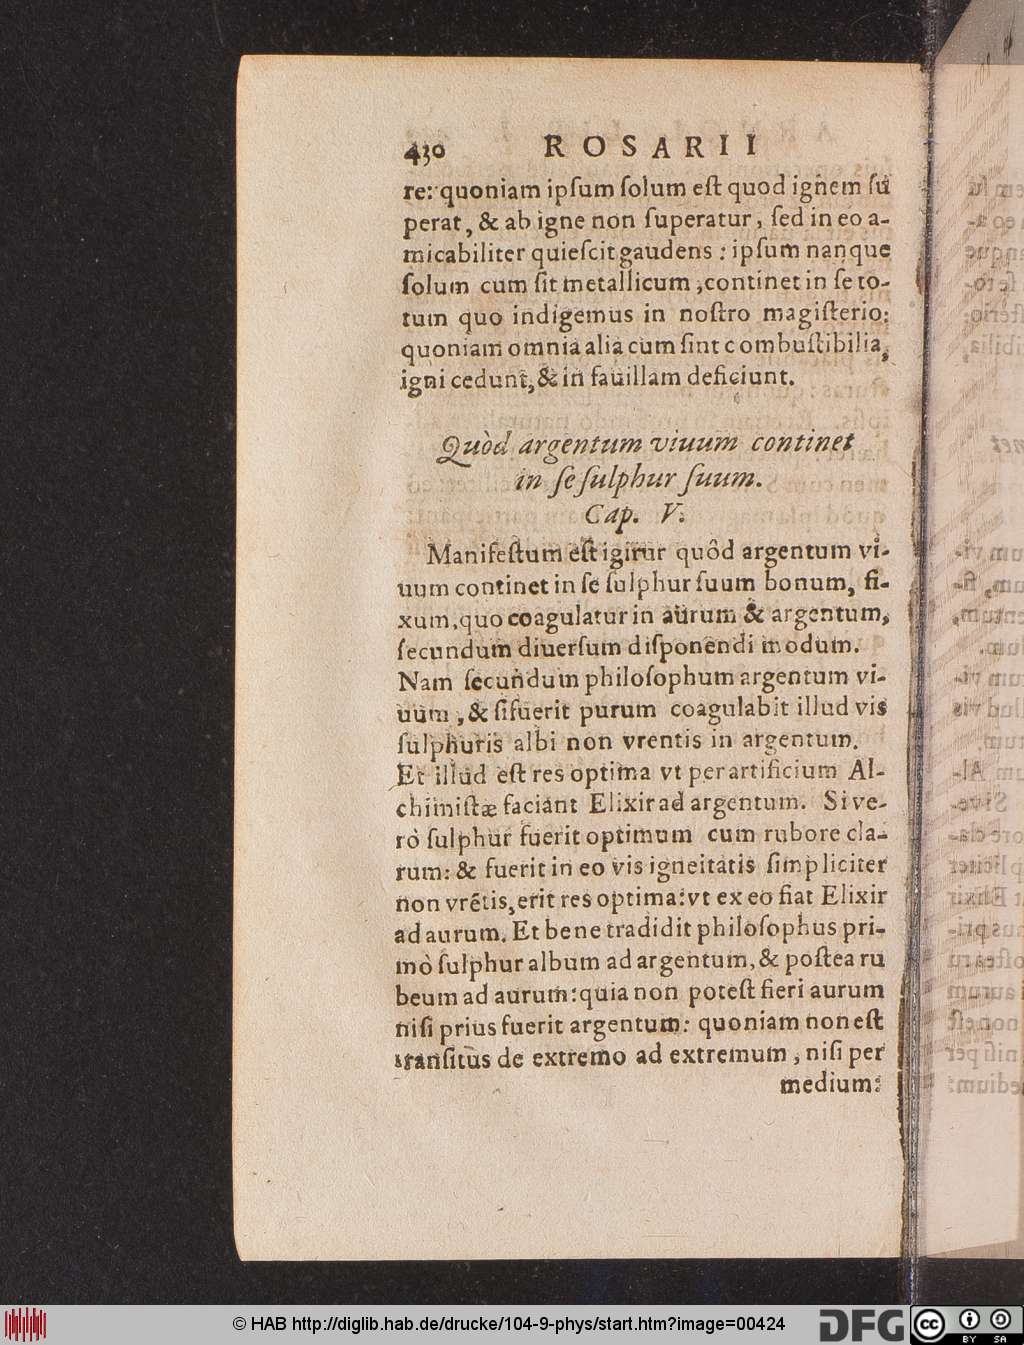 430 ROSARII
re: quoniam ipſum ſolum eſt quod ignem ſu
perat, & ab igne non ſuperatur, ſed in eo a-
micabiliter quieſcit gaudens : ipſum nanque
ſolum cum ſit metallicum, continet in ſe to-
tum quo indigemus in noſtro magiſterio:
quoniam omnia alia cum ſint combuſtibilia,
igni cedunt, & in fauillam deficiunt.
Quòd argentum viuum continet
in ſe ſulphur ſuum.
Cap. V.
Manifeſtum eſt igitur quôd argentum vi-
uum continet in ſe ſulphur ſuum bonum, fi-
xum, quo coagulatur in aurum & argentum,
ſecundum diuerſum diſponendi modum.
Nam ſecundum philoſophum argentum vi-
uum, & ſi fuerit purum coagulabit illud vis
ſulphuris albi non vrentis in argentum.
Et illud eſt res optima vt per artificium Al-
chimiſtæ faciant Elixir ad argentum. Si ve-
rò ſulphur fuerit optimum cum rubore cla-
rum: & fuerit in eo vis igneitatis ſimpliciter
non vrẽtis, erit res optima: vt ex eo fiat Elixir
ad aurum. Et bene tradidit philoſophus pri-
mò ſulphur album ad argentum, & poſtea ru
beum ad aurum: quia non poteſt fieri aurum
niſi prius fuerit argentum: quoniam non eſt
tranſitus de extremo ad extremum, niſi per
medium:
© HAB http://diglib.hab.de/drucke/104-9-phys/start.htm?image=00424
DFG
cc BY SA